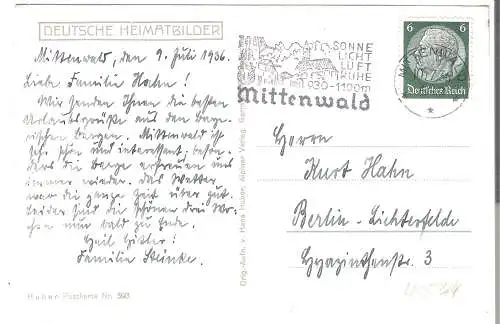 DEUTSCHE HEIMATBILDER
Mittenwald, den 9. Juli 1936.
Liebe Familie Hahn!
Wir senden Ihnen die besten
Urlaubsgrüße aus den baye-
rischen Bergen. Mittenwald ist
sehr schön und interessant, beson-
ders die Berge erfreuen uns
immer wieder. Das Wetter
war die ganze Zeit über gut.
Leider sind die schönen drei Wo-
chen nun bald zu Ende.
Heil Hitler!
Familie Steinke.
Huber-Postkarte Nr.
Orig.-Aufn. v. Hans Huber, Alpiner Verlag,
SONNE
LICHT
LUFT
RUHE
930-1100m
Mittenwald
MITTENWALD
6 6
Deutsches Reich
Herrn
Kurt Hahn
Berlin-Lichterfelde
Hyazinthenstr. 3